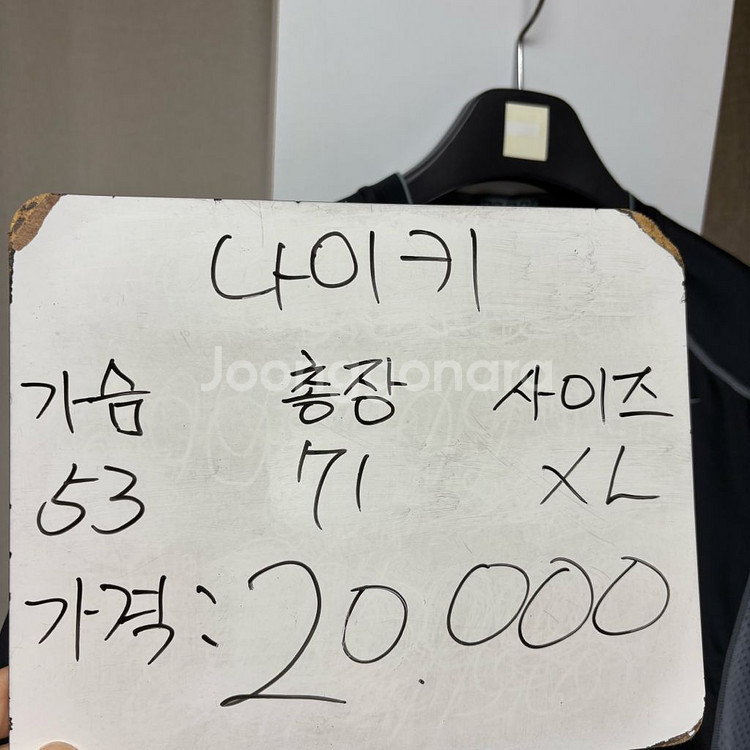 나이키
가슴 총장 사이즈
53 71 XL
가격: 20.000
Joongonara